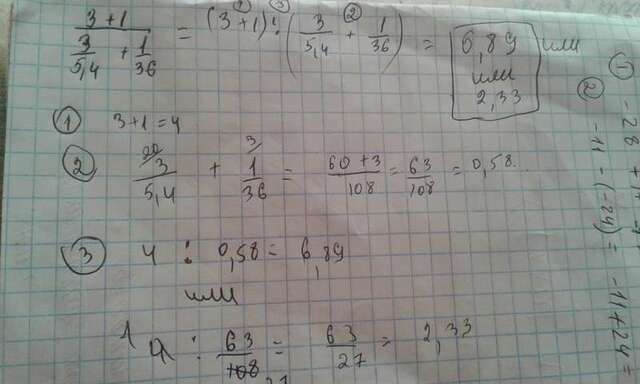 3+1 / (3/5,4 + 1/36) = (3+1) : (3/5,4 + 1/36) = 6,89 или 2,33 или
① 3+1=4
② 3/5,4 + 1/36 = 60+3/108 = 63/108 = 0,58.
③ 4 : 0,58 = 6,89
или
4 : 63/108 = 63/27 = 2,33
-28 +
-11 - (-24) =
-11+24 =